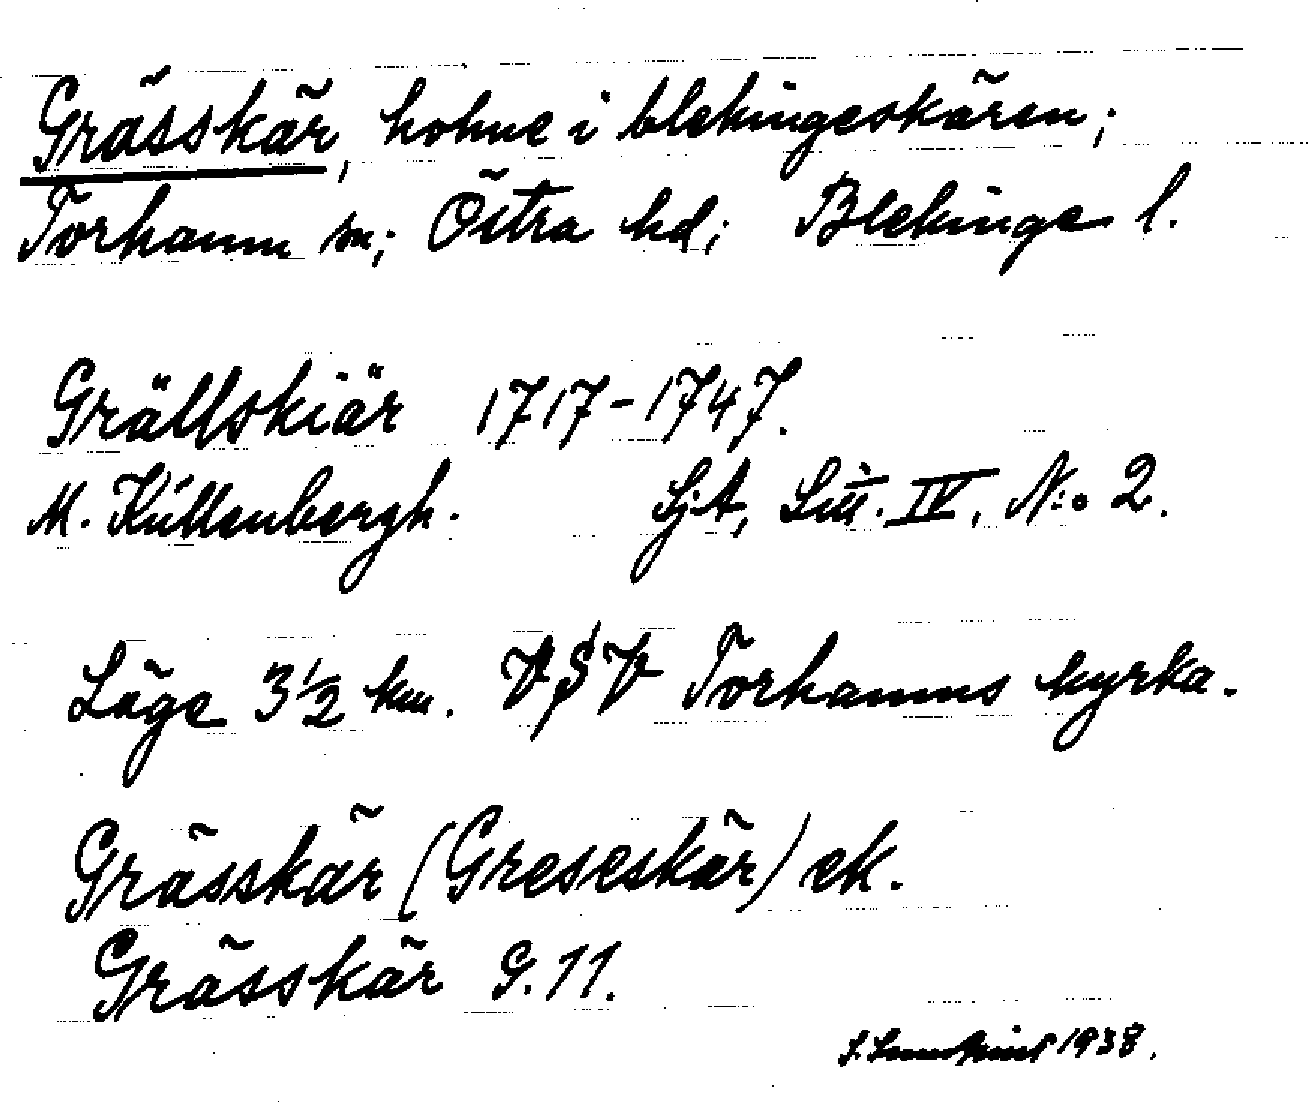 Grässkär, holme i blekingeskären;
Torhamn sn; Östra hd; Blekinge l.
Grällskiär 1717-1747.
M. Küllenbergh. SjA, Litt. IV, N:o 2.
Läge 3 1/2 km. VSV Torhamns kyrka.
Grässkär (Greseskär) ek.
Grässkär G.11.
1938.